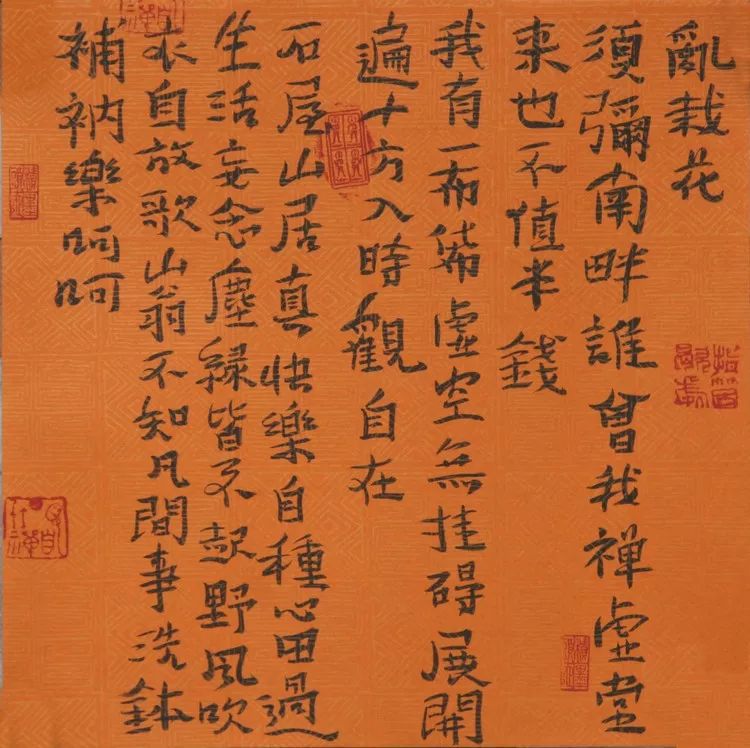 亂栽花
須彌南畔誰會我禅虚堂
来也不值半錢
我有一布帒虚空無挂碍展開
遍十方入時觀自在
石屋山居真快樂自種心田過
生活妄念塵緣皆不起野風吹
衣自放歌山翁不知凡間事洗鉢
補衲樂呵呵